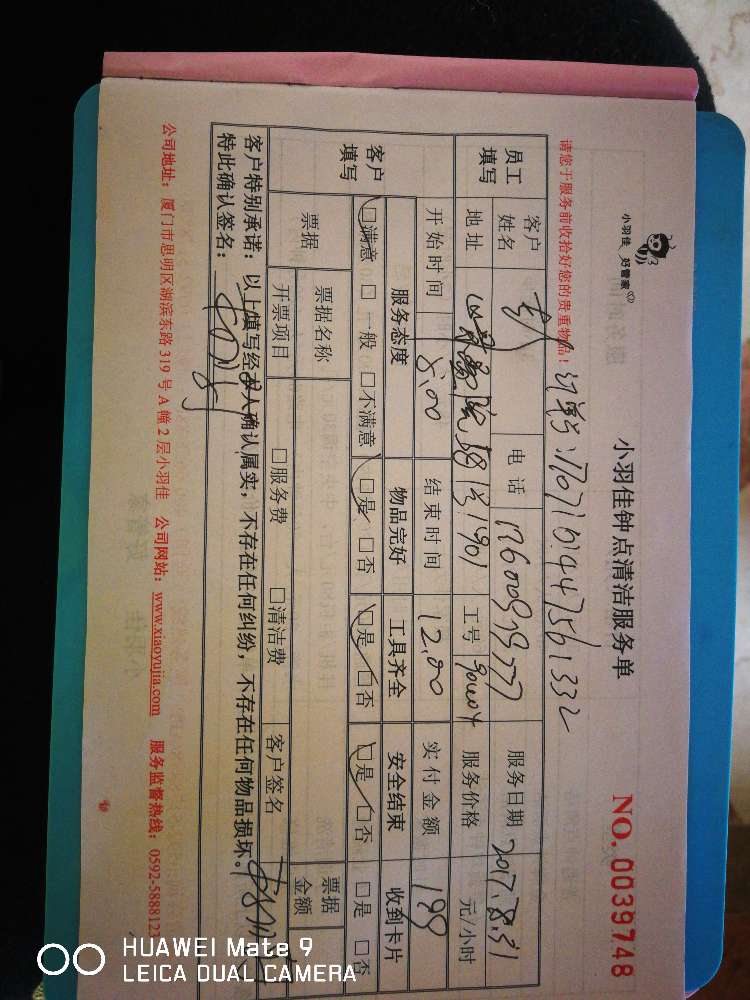 小羽佳 好管家
小羽佳钟点清洁服务单
NO.0039748
请您于服务前收拾好您的贵重物品！
员工填写 客户姓名 电话 17600979777 服务日期 2017.8.31
地址 工号 服务价格 元/小时
客户填写 开始时间 8:00 结束时间 12:00 实付金额 199
服务态度 物品完好 工具齐全 安全结束 收到卡片
□满意 □一般 □不满意 □是 □否 □是 □否 □是 □否 □是 □否
票据 票据名称 票据金额
开票项目 □服务费 □清洁费 客户签名
客户特别承诺：以上填写经本人确认属实，不存在任何纠纷，不存在任何物品损坏。
特此确认签名：
公司地址：厦门市思明区湖滨东路319号A幢2层小羽佳 公司网站：www.xiaoyujia.com 服务监督热线：0592-5888123
HUAWEI Mate 9
LEICA DUAL CAMERA